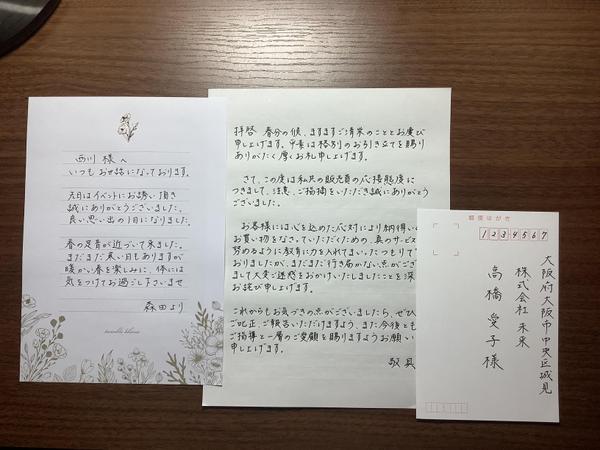 西川 様へ
いつも お世話になっております。
先日はイベントにお誘い頂き
誠にありがとうございました。
良い思い出の1日になりました。
春の足音が近づいて来ました。
まだまだ寒い日もありますが
暖かい春を楽しみに、体には
気をつけてお過ごし下さいませ
森田より
拝啓 春分の候、ますますご清栄のこととお慶び
申し上げます。平素は格別のお引き立てを賜り
ありがたく厚くお礼申し上げます。
さて、この度は私共の販売員の応接態度に
つきまして、注意、ご指摘をいただき誠にありがとう
ございました。
お客様には心を込めた応対により納得い
お買い物をなさっていただくため、真のサービス
努めるように教育に力を入れてまいったつもりで
おりましたが、まだまだ行き届かない点がござ
まして大変ご迷惑をおかけいたしましたことを深
お詫び申し上げます。
これからもお気づきの点がございましたら、ぜひ
ご叱正、ご報告いただけますよう、また今後とも
ご指導と一層のご愛顧を賜りますようお願い
申し上げます。
敬具
郵便はがき
1234567
大阪府大阪市中央区城見
株式会社 未来
高橋 愛子 様